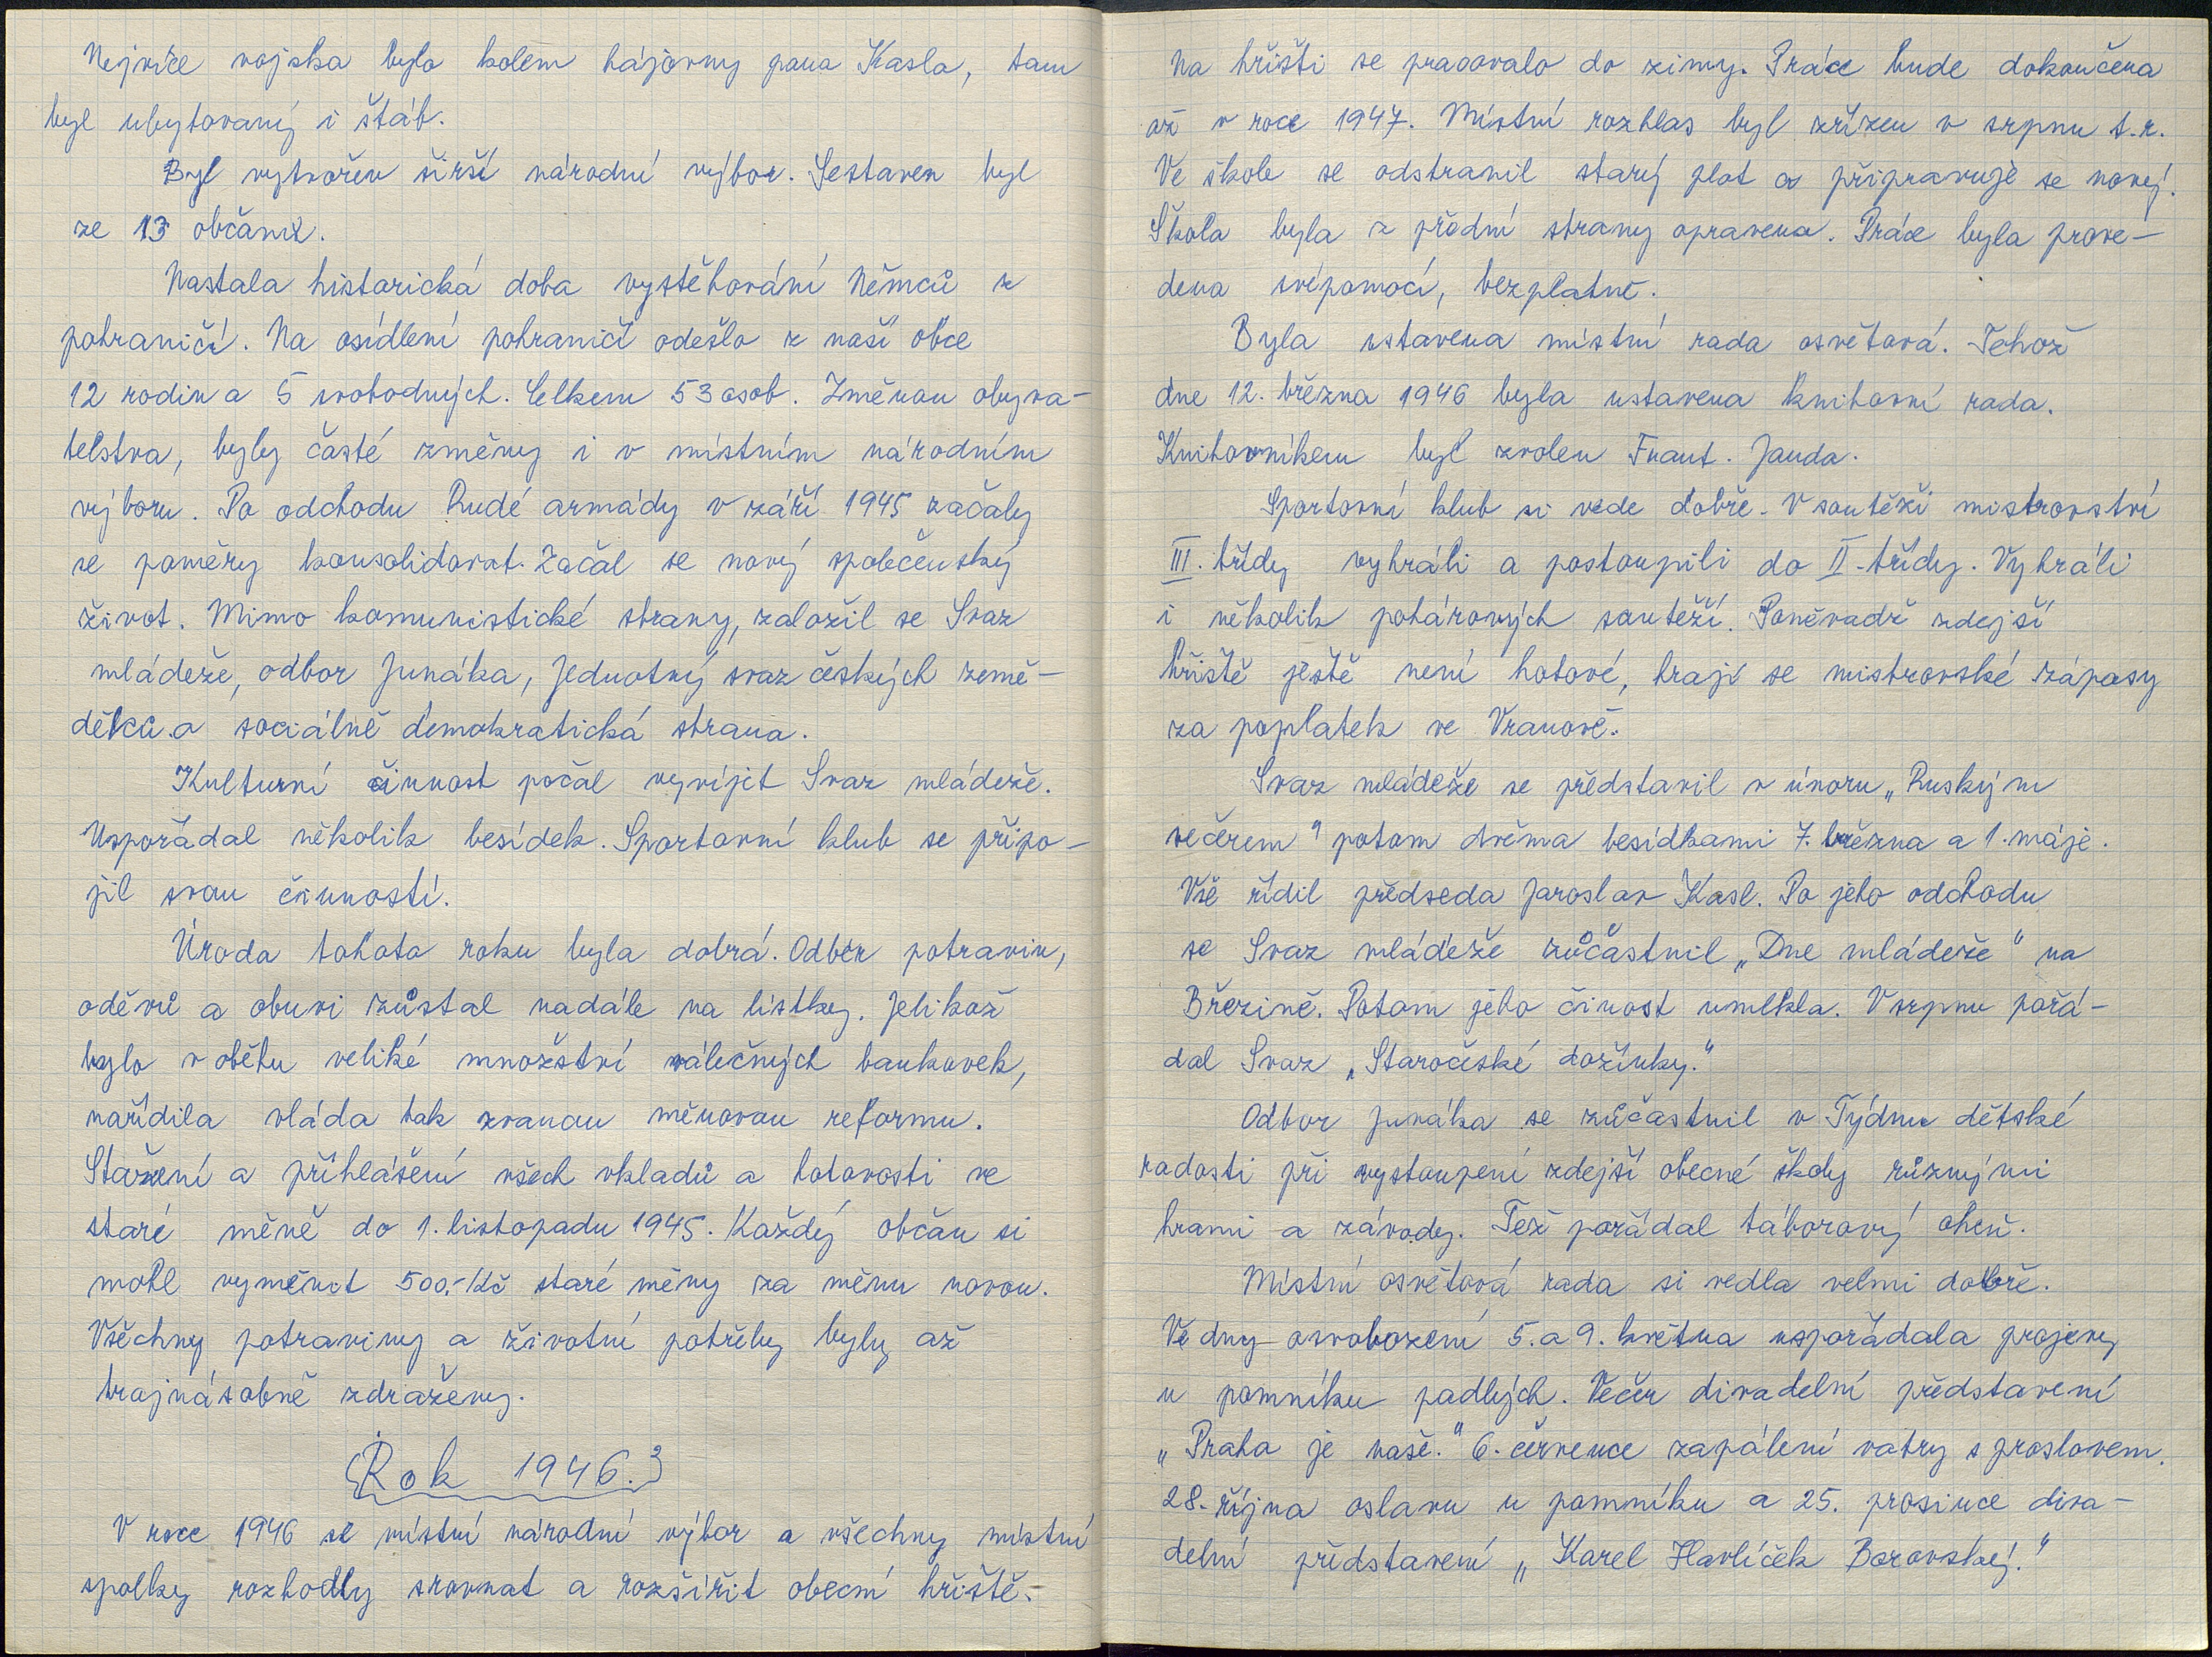 Nejvíce vojska bylo kolem hájovny pana Kasla, tam
byl ubytovaný i štáb.
Byl vytvořen širší národní výbor. Sestaven byl
ze 13 občanů.
Nastala historická doba vystěhování Němců z
pohraničí. Na osídlení pohraničí odešlo z naší obce
12 rodin a 5 svobodných. Celkem 53 osob. Změnou obyva-
telstva, byly časté změny i v místním národním
výboru. Po odchodu Rudé armády v září 1945 začaly
se poměry konsolidovat. Začal se nový společenský
život. Mimo komunistické strany, založil se Svaz
mládeže, odbor Junáka, Jednotný svaz českých země-
dělců a sociálně demokratická strana.
Kulturní činnost počal vyvíjet Svaz mládeže.
Uspořádal několik besídek. Sportovní klub se připo-
jil svou činností.
Úroda tohoto roku byla dobrá. Odběr potravin,
oděvů a obuvi zůstal nadále na lístky. Jelikož
bylo v oběhu veliké množství válečných bankovek,
nařídila vláda tak zvanou měnovou reformu.
Stažení a přihlášení všech vkladů a hotovosti ve
staré měně do 1. listopadu 1945. Každý občan si
mohl vyměnit 500,- Kč staré měny za měnu novou.
Všechny potraviny a životní potřeby byly až
trojnásobně zdraženy.
Rok 1946.
V roce 1946 se místní národní výbor a všechny místní
spolky rozhodly srovnat a rozšířit obecní hřiště.
Na hřišti se pracovalo do zimy. Práce bude dokončena
až v roce 1947. Místní rozhlas byl zřízen v srpnu t.r.
Ve škole se odstranil starý plot a připravuje se nový.
Škola byla z přední strany opravena. Práce byla prove-
dena svépomocí, bezplatně.
Byla ustavena místní rada osvětová. Téhož
dne 12. března 1946 byla ustavena knihovní rada.
Knihovníkem byl zvolen Frant. Janda.
Sportovní klub si vede dobře. V soutěži mistrovství
III. třídy vyhráli a postoupili do II. třídy. Vyhráli
i několik pohárových soutěží. Poněvadž zdejší
hřiště ještě není hotové, hrají se mistrovské zápasy
za poplatek ve Vranově.
Svaz mládeže se představil v únoru „Ruským
večerem" potom dvěma besídkami 7. března a 1. máje.
Vše řídil předseda Jaroslav Kasl. Po jeho odchodu
se Svaz mládeže zůčastnil „Dne mládeže" na
Březině. Potom jeho činost umlkla. V srpnu pořá-
dal Svaz „Staročeské dožínky."
Odbor Junáka se zůčastnil v Týdnu dětské
radosti při vystoupení zdejší obecné školy různými
hrami a závody. Též pořádal táborový oheň.
Místní osvětová rada si vedla velmi dobře.
Ve dny osvobození 5. a 9. května uspořádala projevy
u pomníku padlých. Večer divadelní představení
„Praha je naše." 6. července zapálení vatry s proslovem.
28. října oslavu u pomníku a 25. prosince diva-
delní představení „Karel Havlíček Borovský."